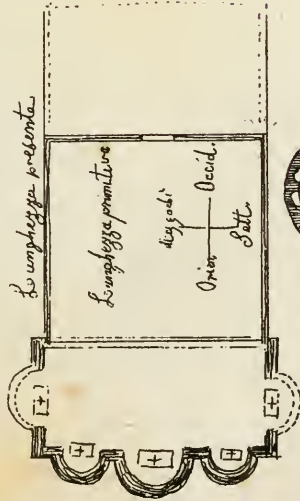 Lunghezza presente
Lunghezza primitiva
Orien
Occid.
Sett.